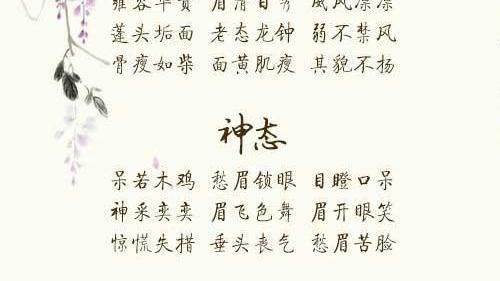 雍容华贵 眉清目秀 威风凛凛
蓬头垢面 老态龙钟 弱不禁风
骨瘦如柴 面黄肌瘦 其貌不扬
神态
呆若木鸡 愁眉锁眼 目瞪口呆
神采奕奕 眉飞色舞 眉开眼笑
惊慌失措 垂头丧气 愁眉苦脸